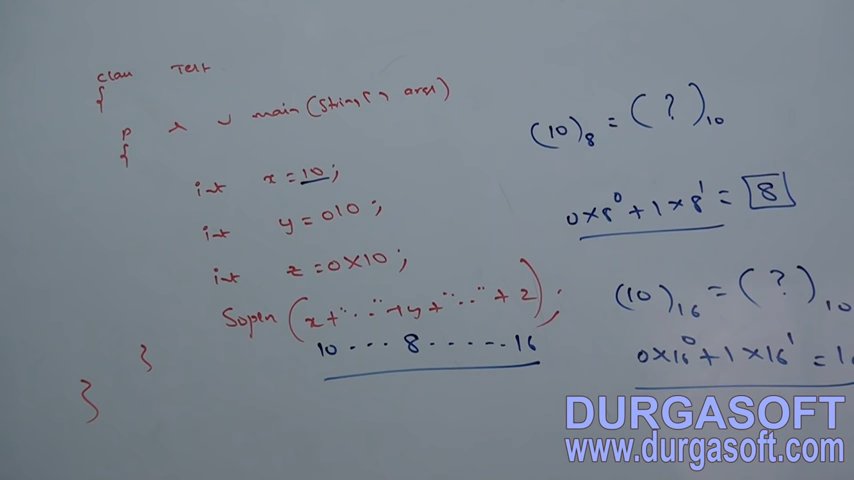 class Test
{
p s v main (String[] args)
{
int x = 10;
int y = 010;
int z = 0X10;
Sopln (x+"...."+y+"...."+z);
10 ... 8 ..... 16
}
}
(10)8 = (?)10
0×8^0 + 1×8^1 = 8
(10)16 = (?)10
0×16^0 + 1×16^1 = 1
DURGASOFT
www.durgasoft.com